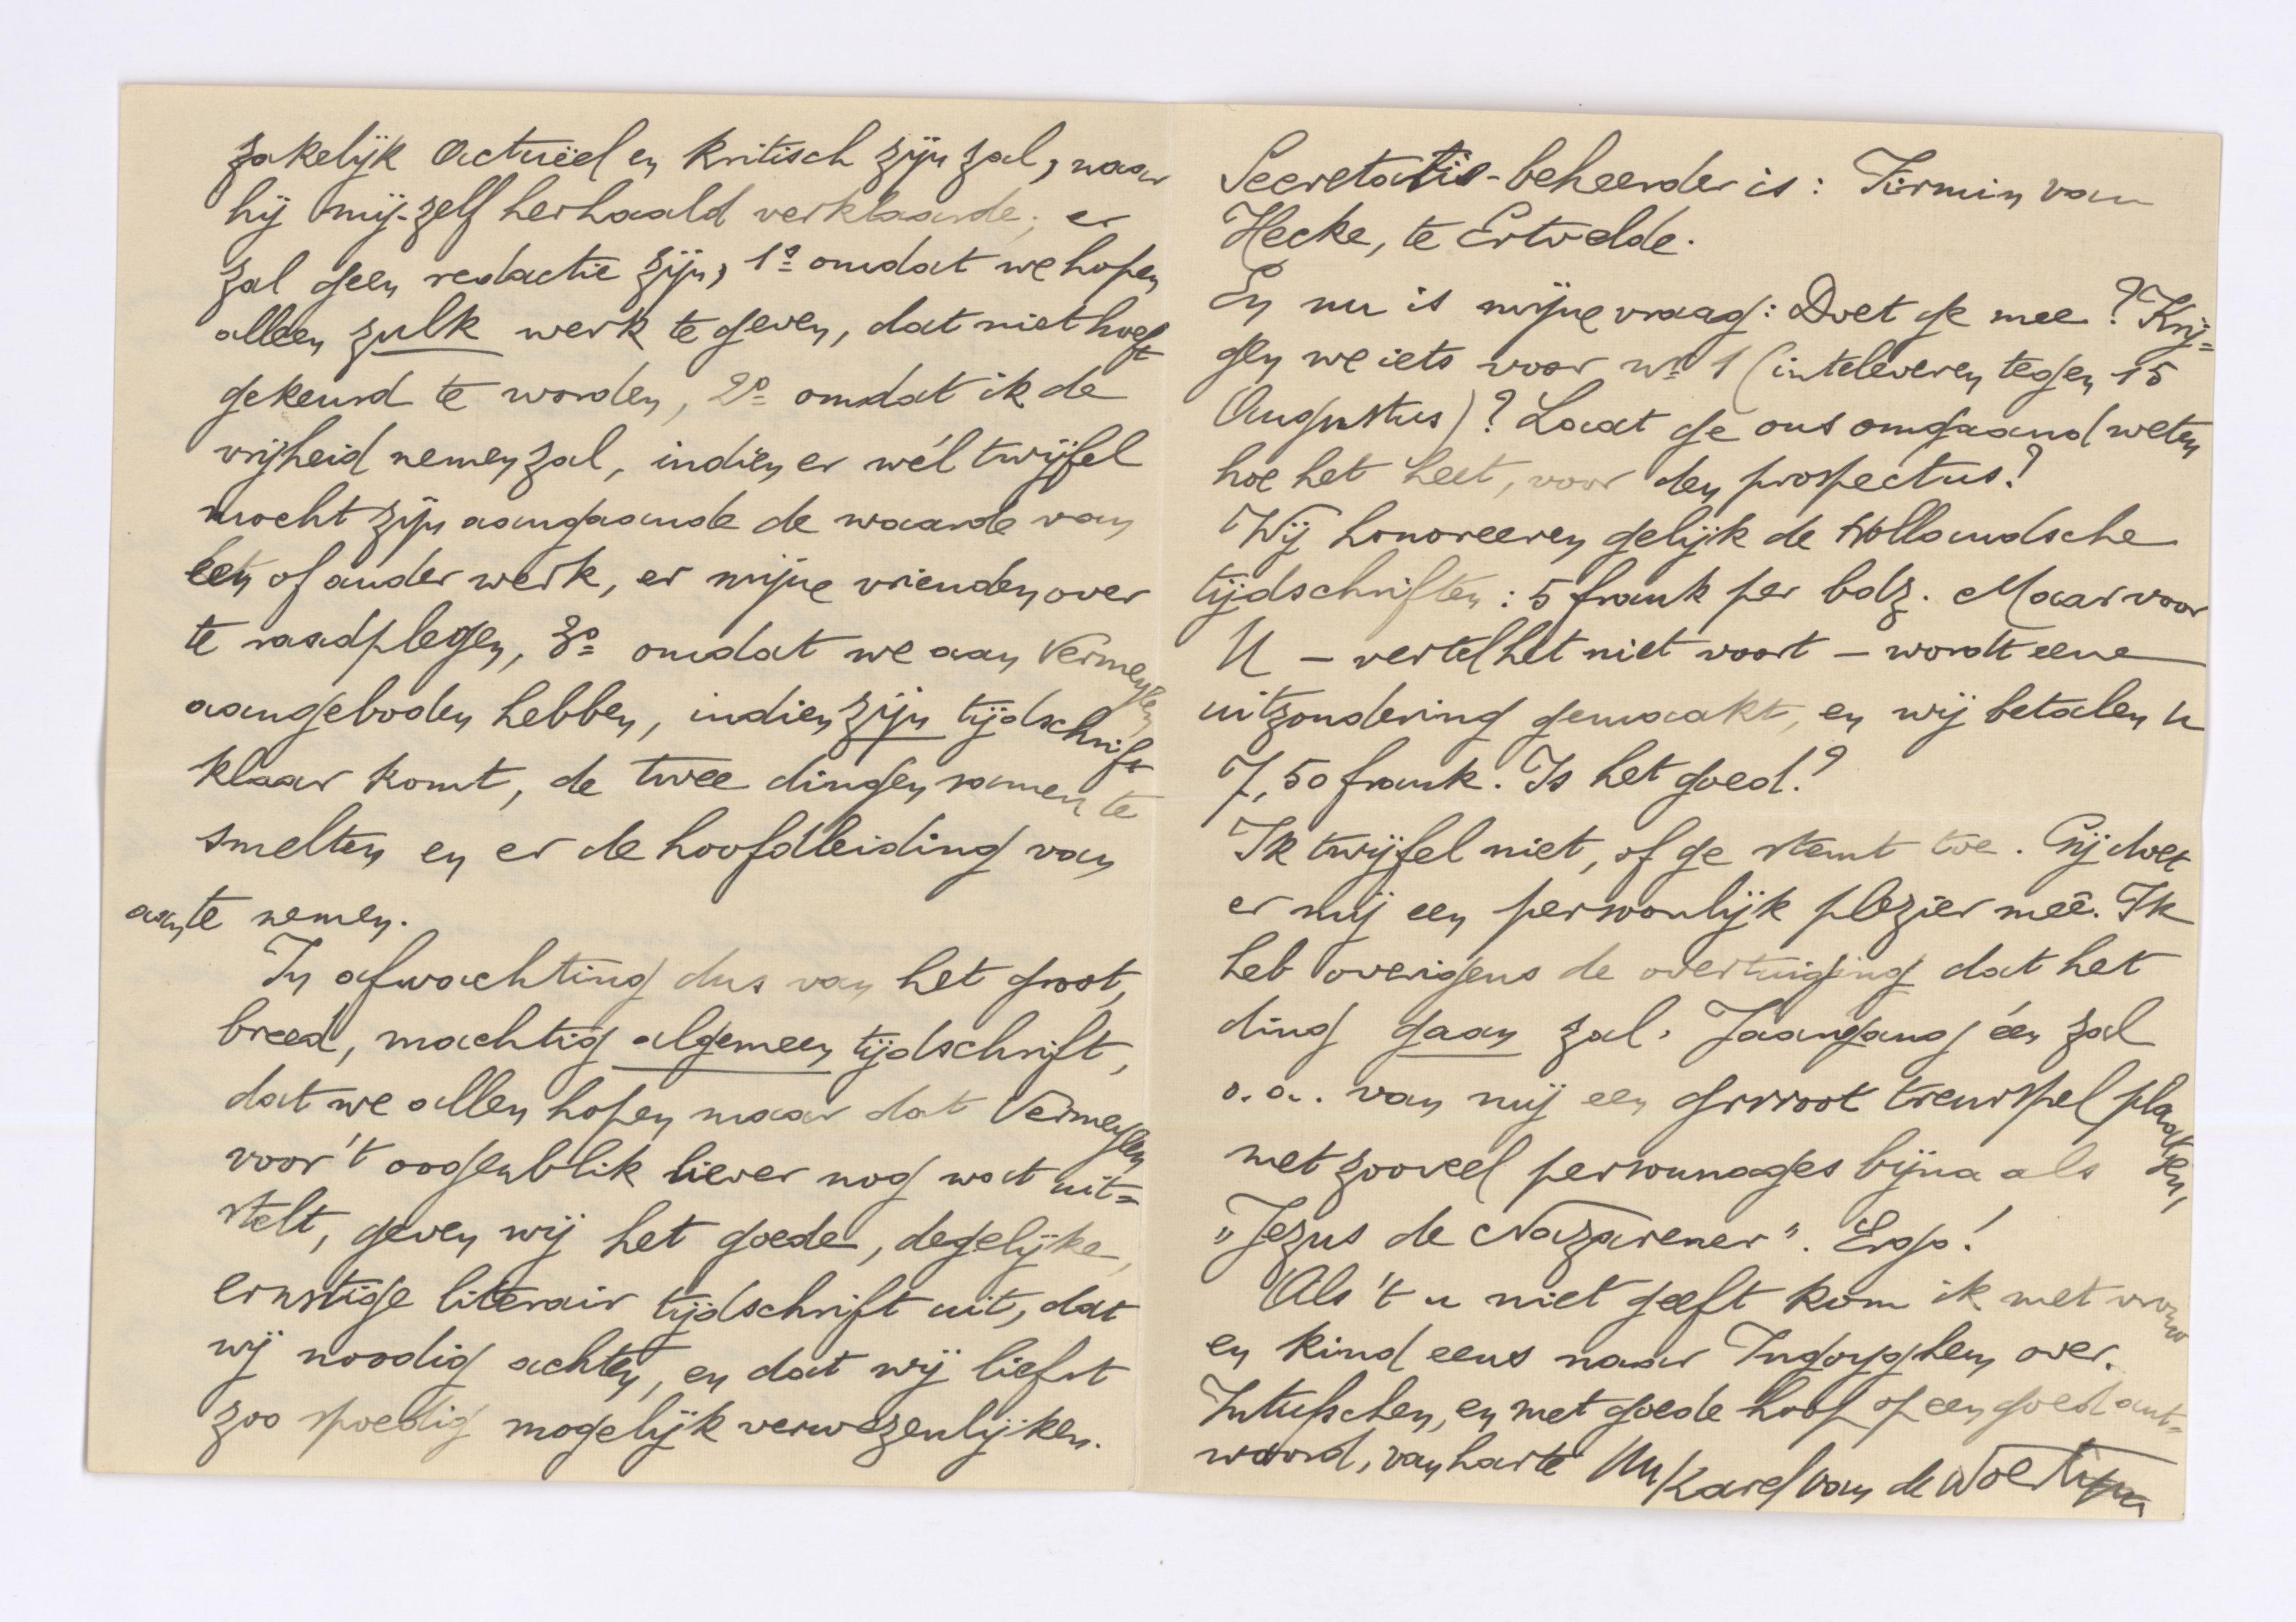 zakelijk actuëel en kritisch zijn zal, naar
hij mij-zelf herhaald verklaarde; er
zal geen redactie zijn, 1º omdat we hopen
alleen zulk werk te geven, dat niet hoeft
gekeurd te worden, 2º omdat ik de
vrijheid nemen zal, indien er wél twijfel
mocht zijn aangaande de waarde van
één of ander werk, er mijne vrienden over
te raadplegen, 3º omdat we aan Vermeylen
aangeboden hebben, indien zijn tijdschrift
klaar komt, de twee dingen samen te
smelten en er de hoofdleiding van
aan te nemen.
In afwachting dus van het groot,
breed, machtig algemeen tijdschrift,
dat we allen hopen maar dat Vermeylen
voor 't oogenblik liever nog wat uit=
stelt, geven wij het goede, degelijke,
ernstige literair tijdschrift uit, dat
wij noodig achten, en dat wij liefst
zoo spoedig mogelijk verwezenlijken.
Secretaris-beheerder is: Firmin van
Hecke, te Ertvelde.
En nu is mijne vraag: Doet ge mee? Krij=
gen we iets voor nr 1 (inteleveren tegen 15
Augustus)? Laat ge ons omgaand weten
hoe het heet, voor den prospectus?
Wij honoreeren gelijk de Hollandsche
tijdschriften: 5 frank per bdz. Maar voor
U – vertel het niet voort – wordt eene
uitzondering gemaakt, en wij betalen u
7,50 frank. Is het goed?
Ik twijfel niet, of ge stemt toe. Gij doet
er mij een persoonlijk plezier meê. Ik
heb overigens de overtuiging dat het
ding gaan zal. Jaargang één zal
o.a. van mij een grrroot treurspel plaatsen,
met zooveel personnages bijna als
„Jezus de Nazarener". Ergo!
Als 't u niet geeft kom ik met vrouw
en kind eens naar Ingoyghem over.
Intusschen, en met goede hoop op een goed ant=
woord, van harte Uw Karel van de Woestijne